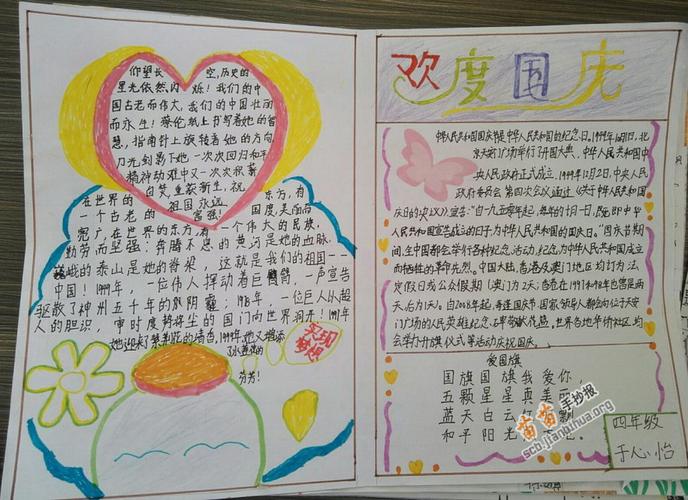 仰望长空,历史的
星光依然闪烁!我们的中
国古老而伟大,我们的中国壮丽
而永生!蔡伦纸上书写着她的智
慧,指南针上旋转着她的方向
刀光剑影下她一次次回归和平
精神动难中又一次次积蓄
白梦,重获新生,祝
祖国永远
富强!
在世界的东方,有
一个古老的国度,美丽而
宽广,在世界的东方,有一个伟大的民族,
勤劳而坚强:奔腾不息的黄河是她的血脉,
巍峨的泰山是她的脊梁,这就是我们的祖国——
中国!1949年,一位伟人挥动着巨臂,一声宣告
驱散了神州五十年的阴霾;1978年,一位巨人以超
人的胆识,审时度势将尘的国门向世界洞开!1997年
她迎来了紫荆花的清香,1999年她又增添
了水莲花的
芬芳!
实现
梦想
欢度国庆
中华人民共和国国庆节是中华人民共和国的纪念日。1949年10月1日,北
京天安门广场举行了开国大典,中华人民共和国中
央人民政府正式成立。1949年12月2日,中央人民
政府委员会第四次会议通过《关于中华人民共和国
国庆日的决议》宣告:"自一九五零年起,每年的十月一日,既即中华
人民共和国宣告成立的日子,为中华人民共和国的国庆日。"国庆节期
间,全中国都会举行各种纪念活动,纪念为中华人民共和国成立
而牺牲的革命先烈。中国大陆,香港及澳门地区均订为法
定假日或公众假期(澳门为2天;香港在1997-1998年也曾是两
天,后为1天)。自2008年起,每逢国庆节,国家领导人都会向位于天安
门广场的人民英雄纪念碑奉献花篮,世界各地华侨社区均
会举办升旗仪式等活动庆祝国庆。
爱国旗
国旗国旗我爱你,
五颗星星真美丽。
蓝天白云
和平阳光
四年级
于心怡
苗苗手抄报
scb.jianghua.org